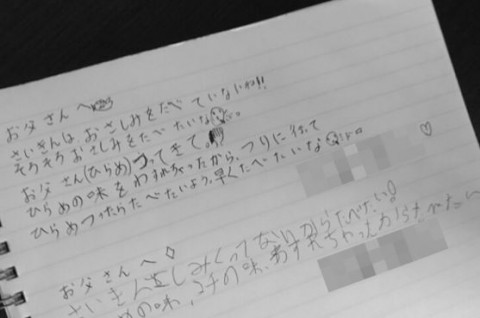 お父さんへ
さいきんは おさしみをたべていないね!!
そろそろおさしみをたべたいな。
お父さん(ひらめ)つってきて
ひらめの味をわすれちゃったから、つりに行って
ひらめつったらたべたいよう。早くたべたいな
お父さんへ◇
さいきん
の味、コチの味、わすれちゃったから